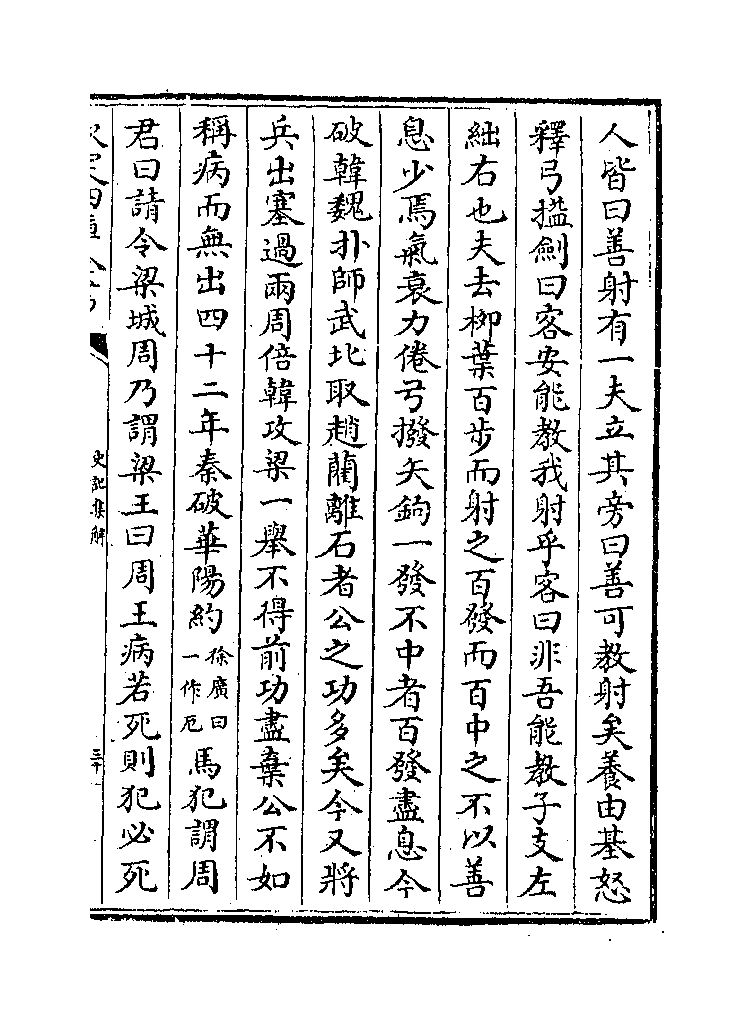 人皆曰善射有一夫立其旁曰善可教射矣養由基怒
釋弓搤劍曰客安能教我射乎客曰非吾能教子支左
絀右也夫去栁葉百步而射之百發而百中之不以善
息少焉氣衰力倦弓撥矢鉤一發不中者百發盡息今
破韓魏扑師武北取趙藺離石者公之功多矣今又將
兵出塞過兩周倍韓攻梁一舉不得前功盡棄公不如
稱病而無出四十二年秦破華陽約徐廣曰一作厄馬犯謂周
君曰請令梁城周乃謂梁王曰周王病若死則犯必死
史記集解